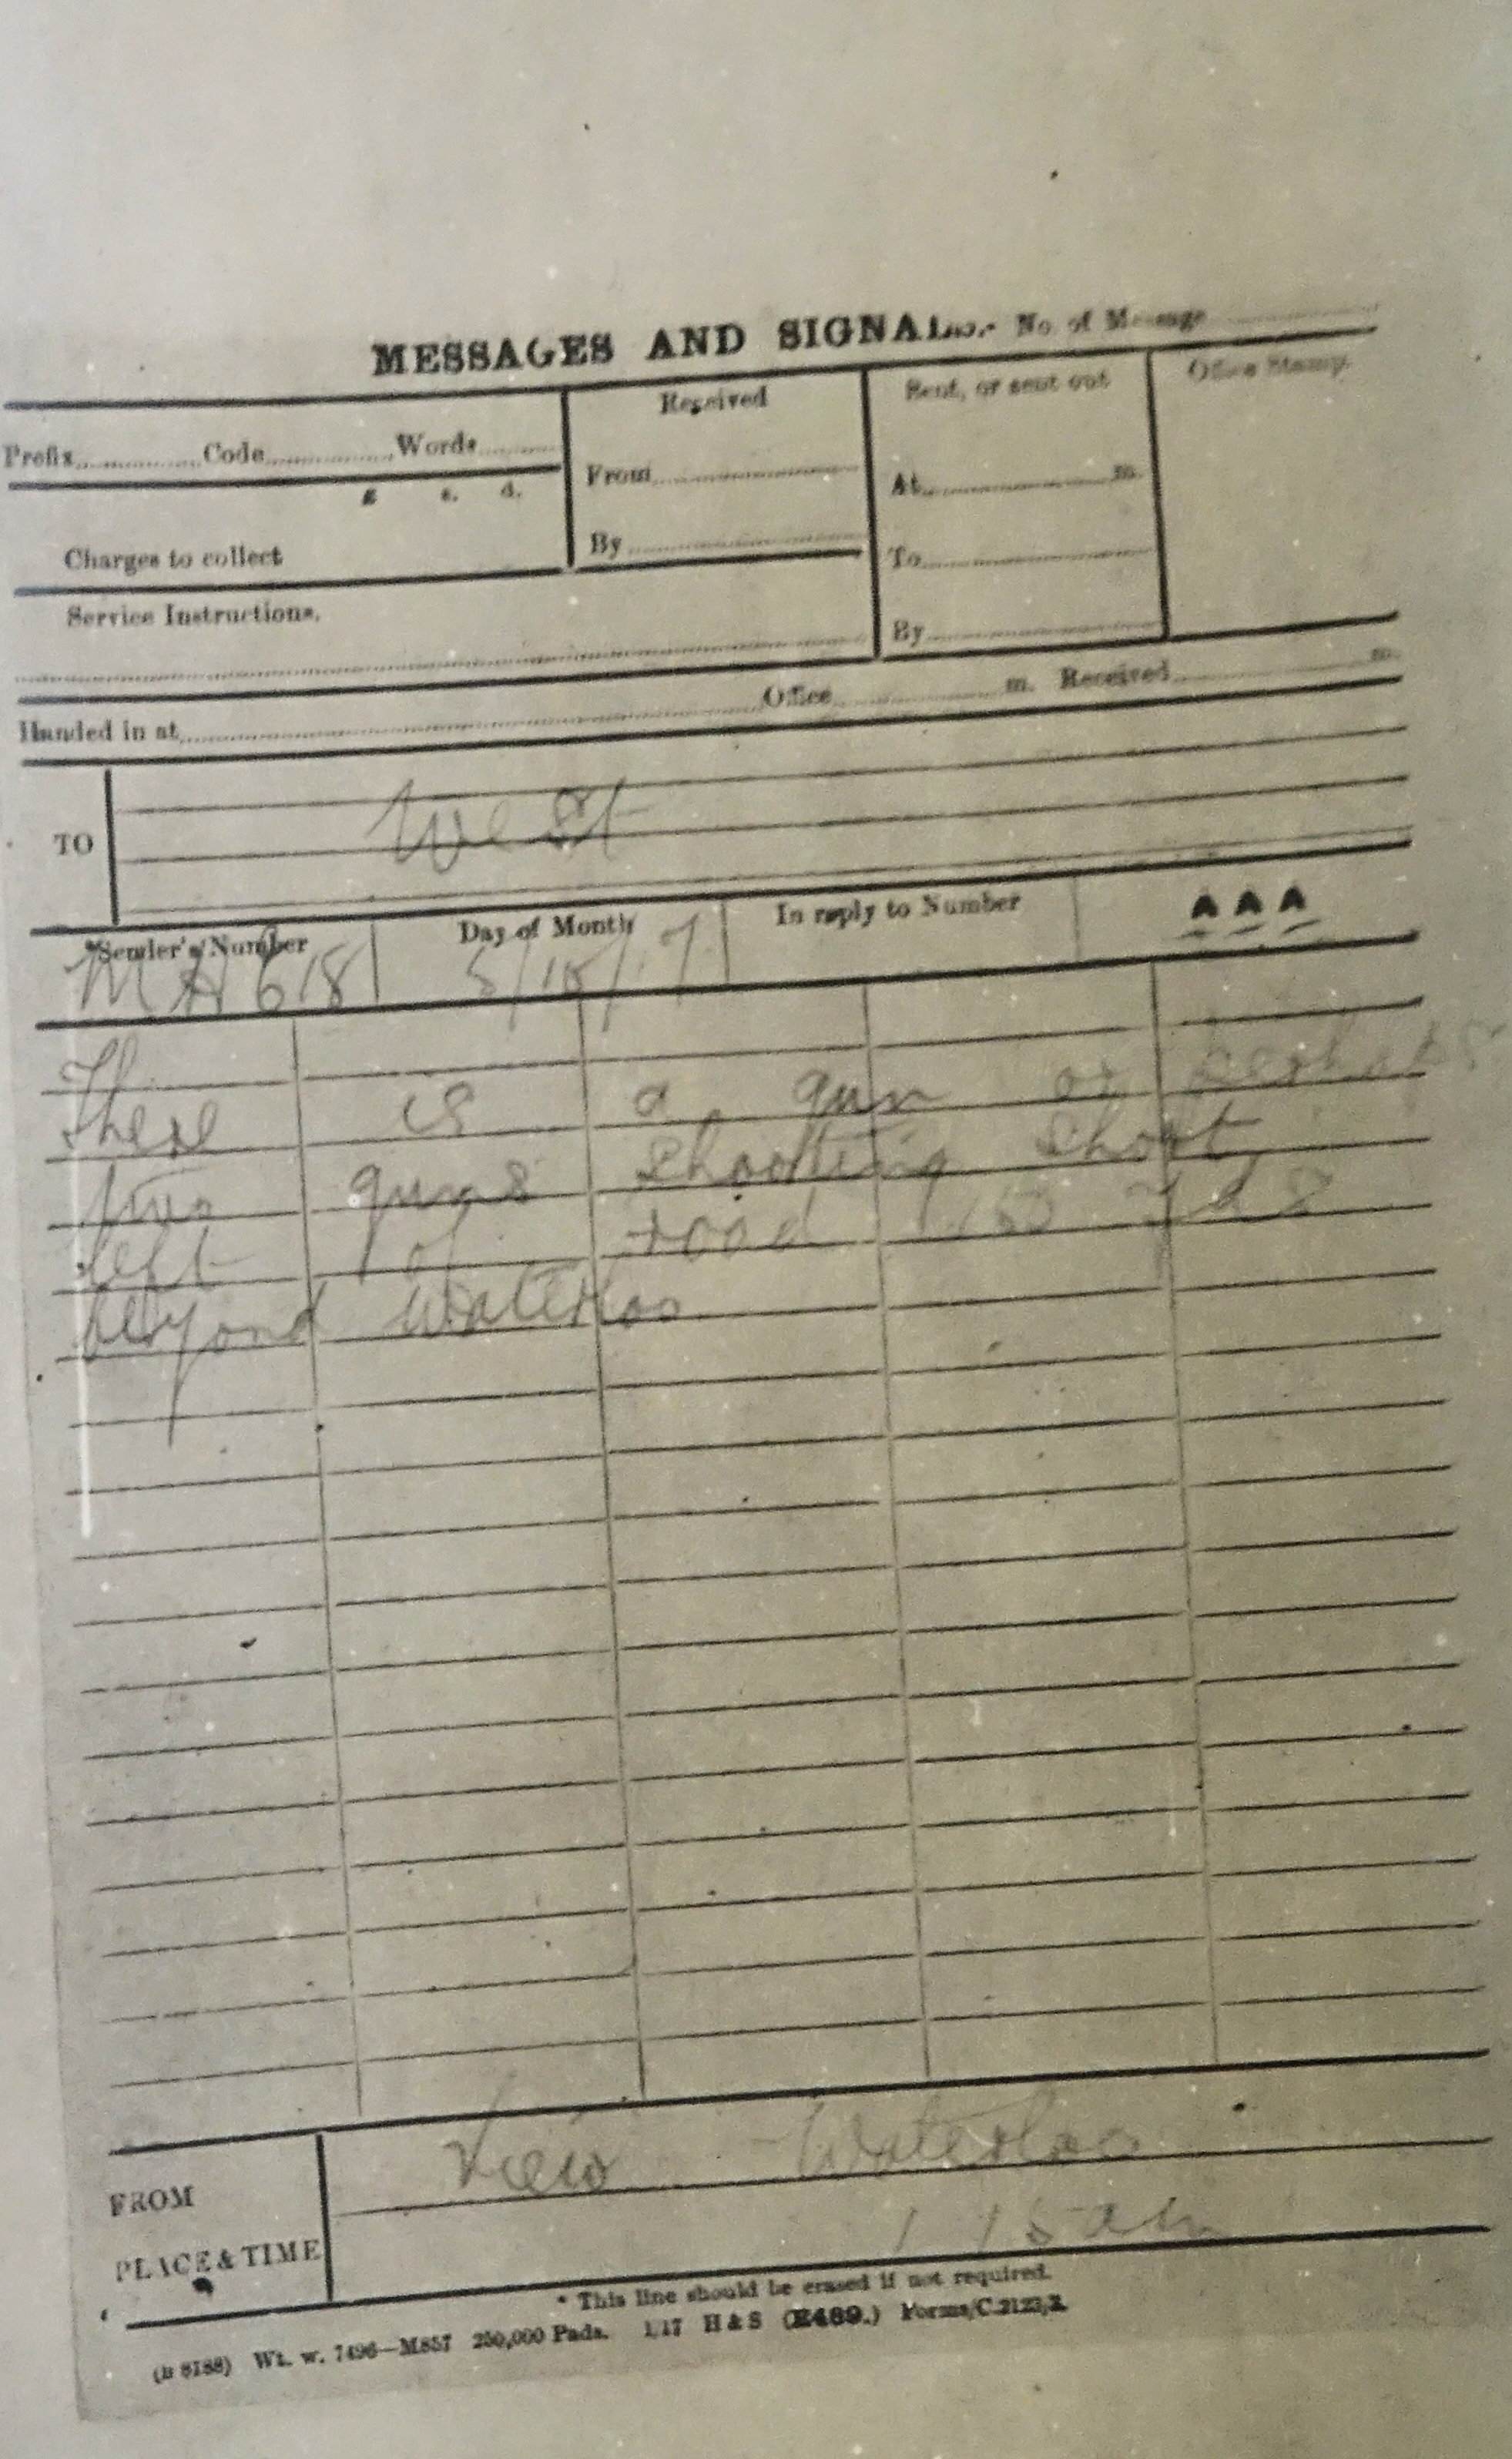 MESSAGES AND SIGNALS. No. of Message
Prefix Code Words
£ s. d.
Charges to collect
Service Instructions.
Received
From
By
Sent, or sent out
At m.
To
By
Office Stamp.
Handed in at Office m. Received m.
TO West
*Sender's Number Day of Month In reply to Number AAA
MA618 5/10/17
There is a gun or perhaps
two guns shooting short
left of road 150 yds
beyond Waterloo
FROM View Waterloo
PLACE & TIME 1 15 am
* This line should be erased if not required.
(B 8188) Wt. w. 7496—M857 250,000 Pads. 1/17 H & S (E489.) Forms/C.2123/3.